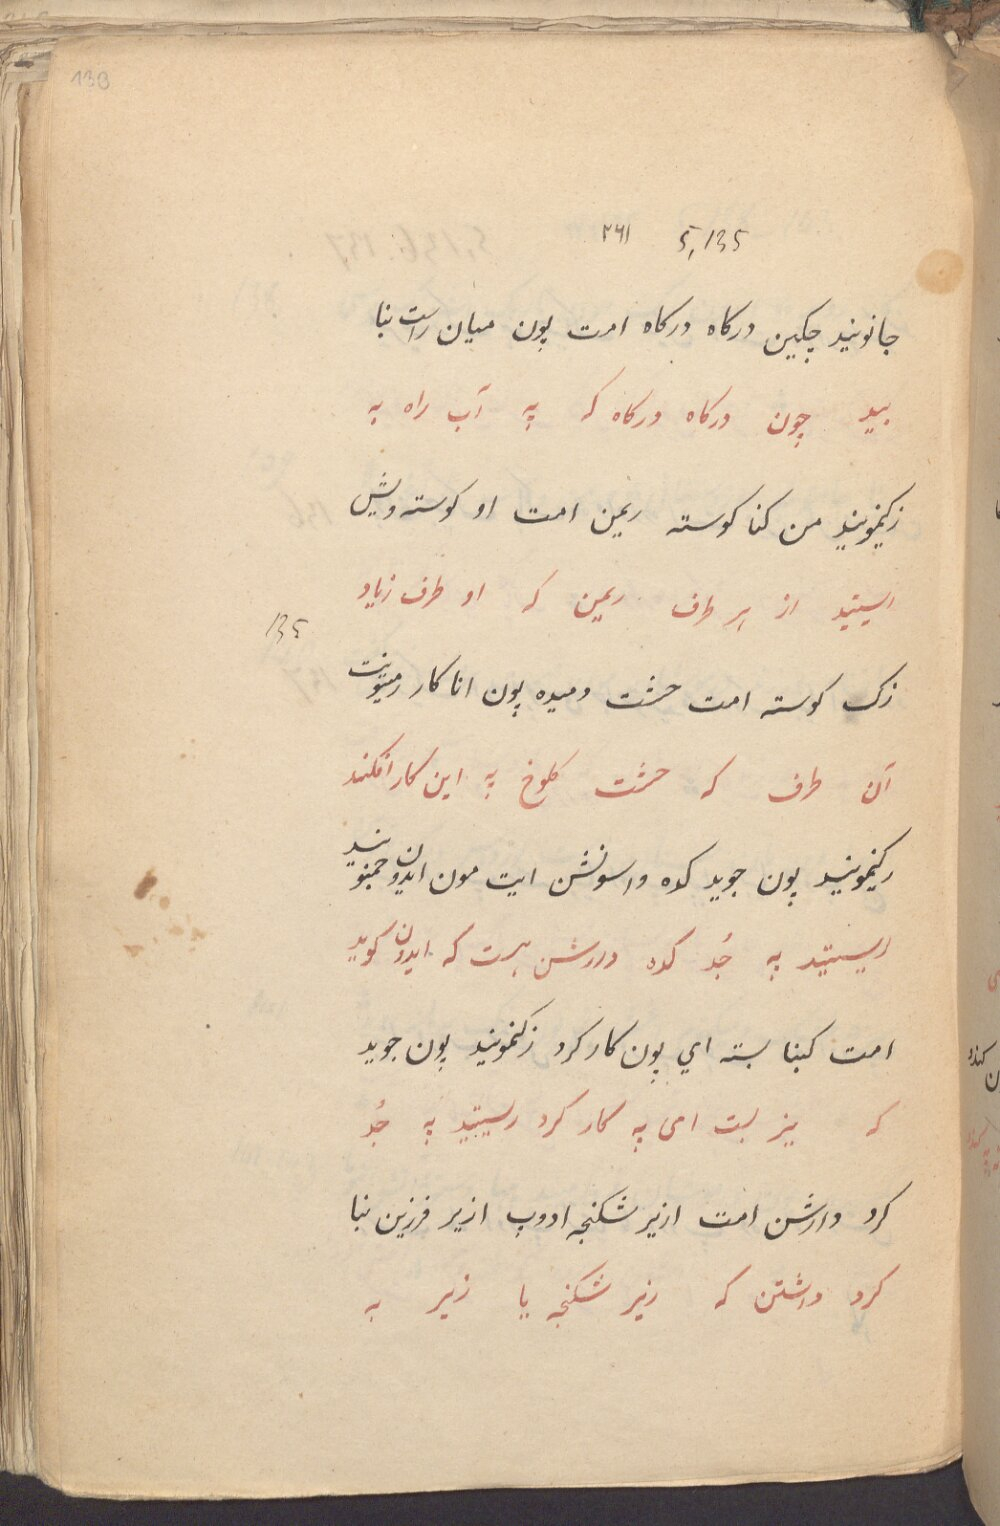 138
5,135 ۲۶۱
جانونید چکین درکاه درکاه امت پون میان راست بنا
بید چون درکاه درکاه که په آب راه به
زکیمونید من کنا کوسته ریمین امت او کوسته ویش
استید از هر طرف ریمین که او طرف زیاد
135
زک کوسته امت خشت ومیده پون انا کار رمیتونت
آن طرف که خشت کلوخ په این کار افکند
رکیمونید پون جوید کده واسونشن ایت مون ایدون جمنونید
ایستید په جُد کده داررشن هست که ایدون کوید
امت کبنا بسته امي پون کار کرد زکیمونید پون جوید
که نیز بست امی په کار کرد رسیتید په جُد
کرد وارشن امت ازیر شکنجه ادوپ ازیر فرزین بنا
کرد داشتن که زیر شکنجه یا زیر به